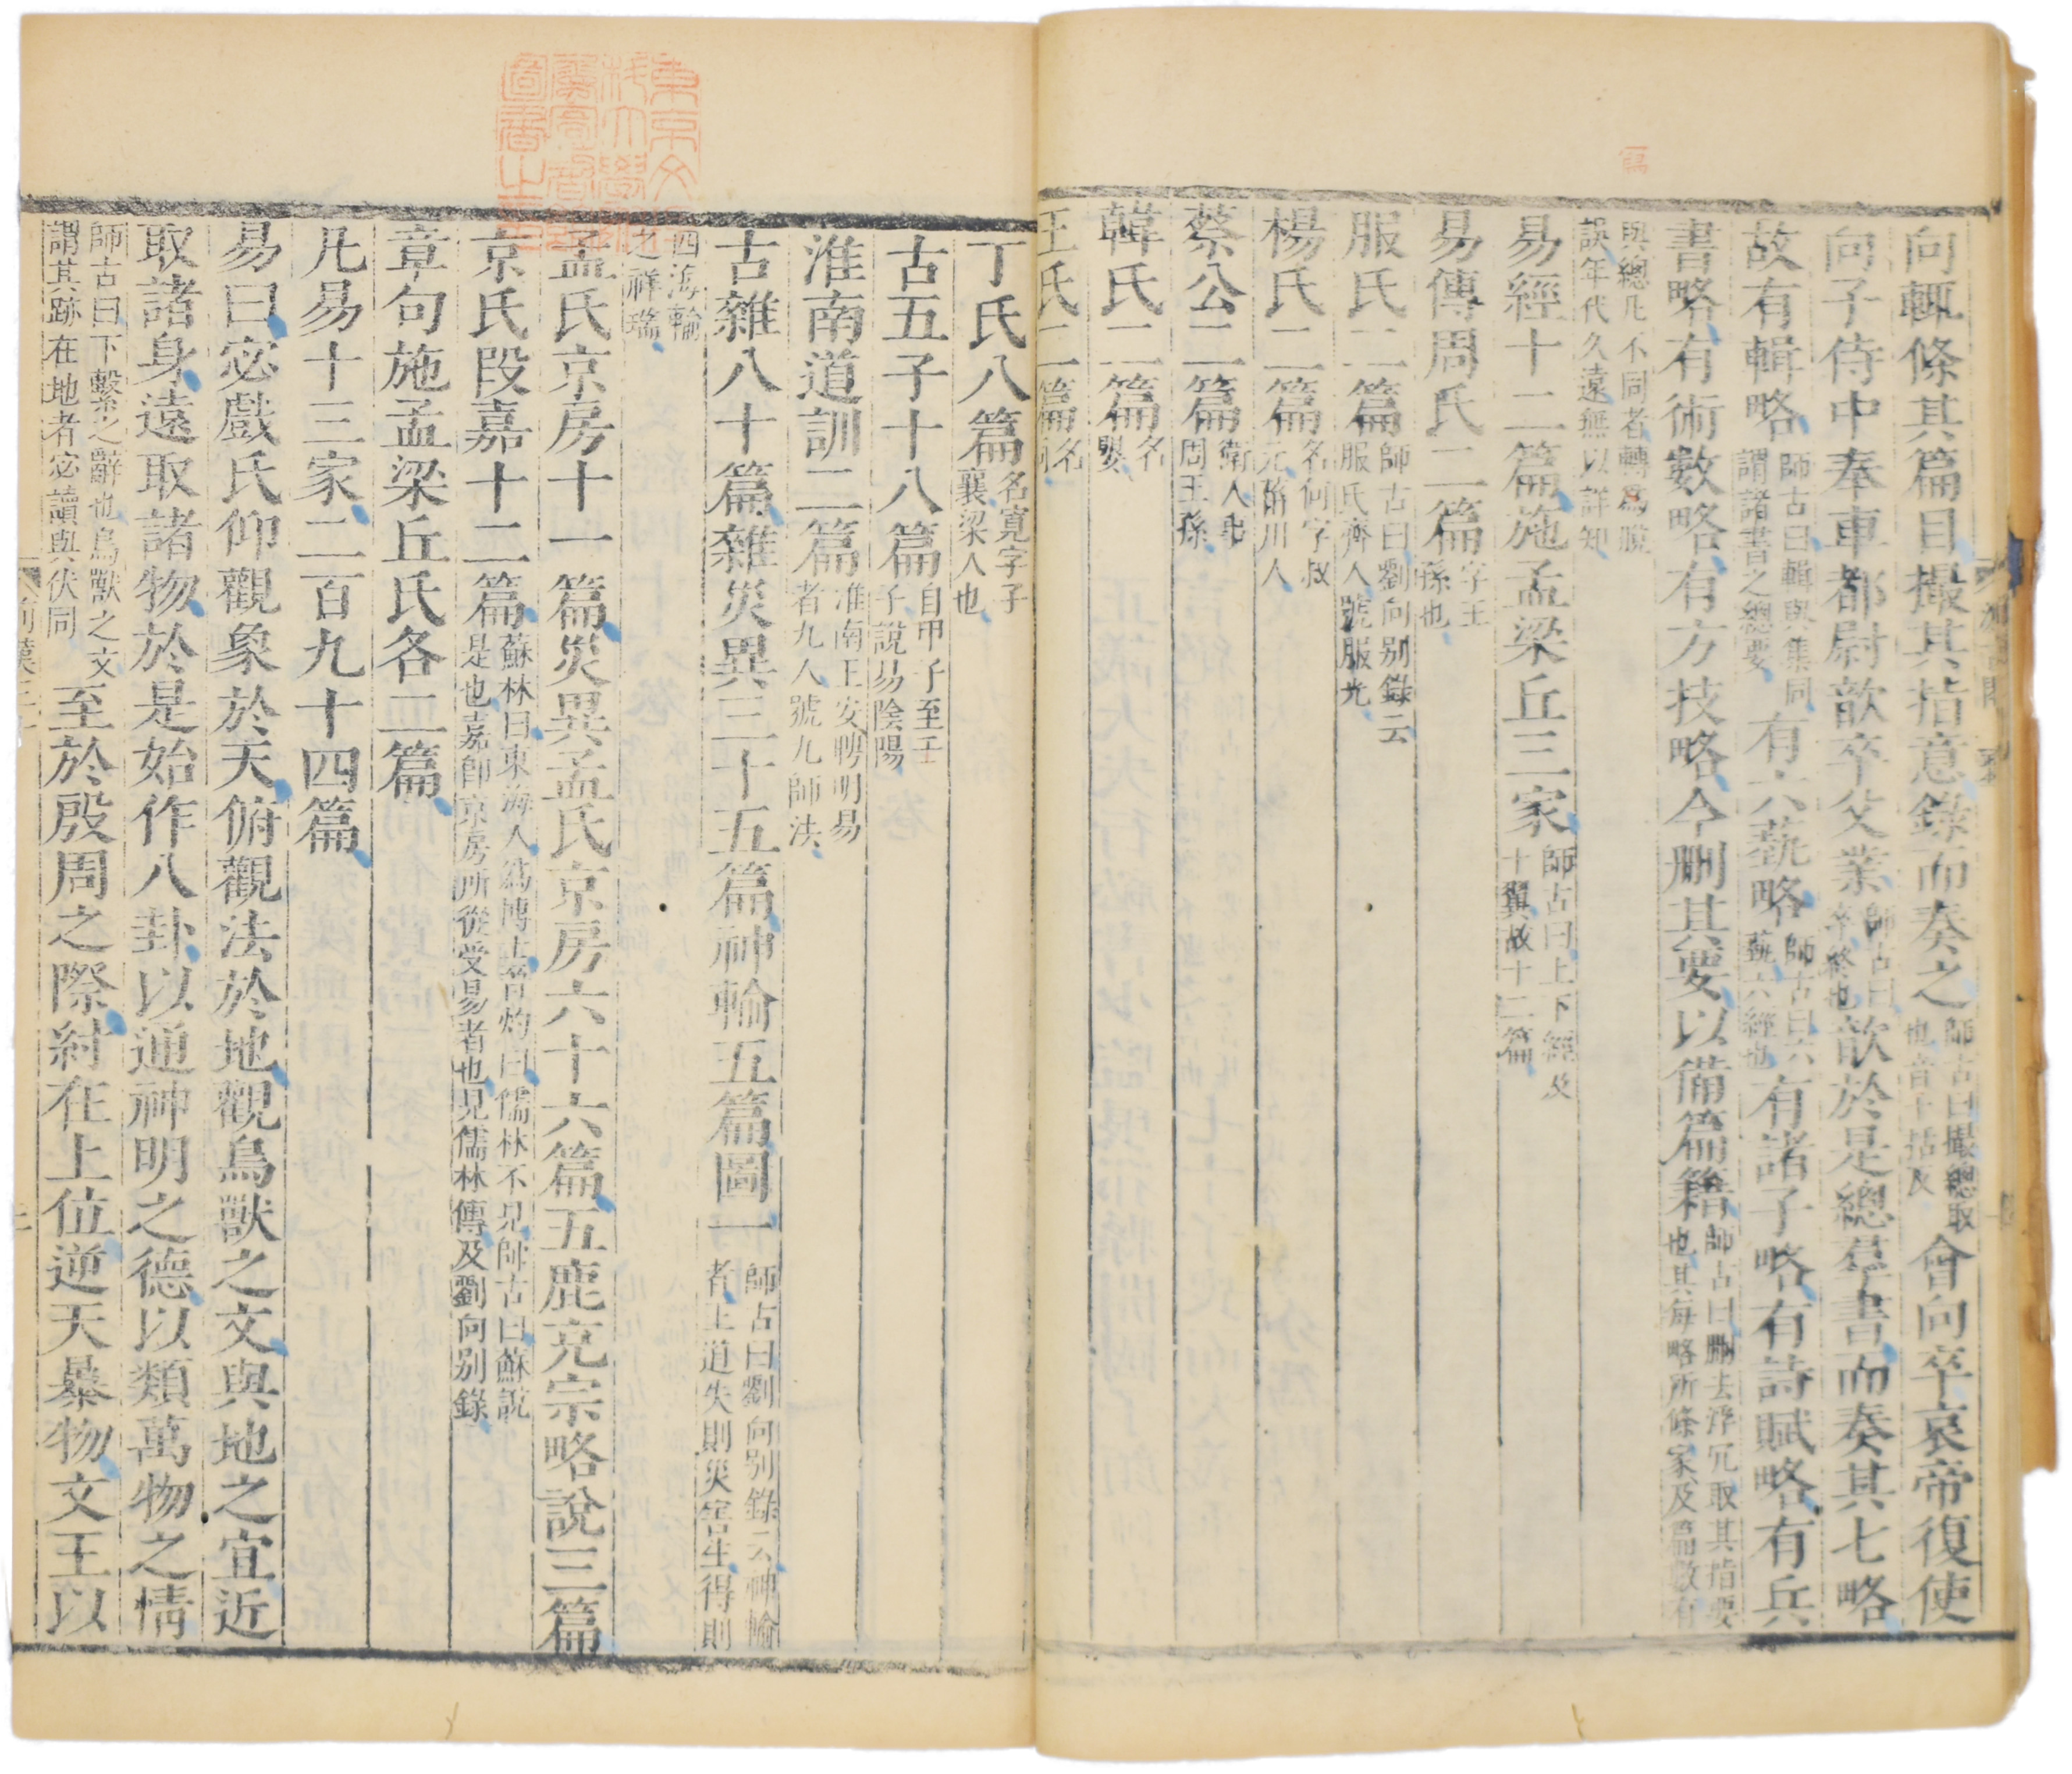 向輒條其篇目撮其指意錄而奏之師古曰撮總取也音千括反會向卒哀帝復使
向子侍中奉車都尉歆卒父業師古曰卒終也歆於是總羣書而奏其七略
故有輯略師古曰輯與集同謂諸書之總要有六藝略師古曰六藝六經也有諸子略有詩賦略有兵
書略有術數略有方技略今刪其要以備篇籍師古曰刪去浮冗取其指要也其每略所條家及篇數有
與總凡不同者轉爲脫誤年代久遠無以詳知
易經十二篇施孟梁丘三家師古曰上下經及十翼故十二篇
易傳周氏二篇字王孫也
服氏二篇師古曰劉向別錄云服氏齊人號服光
楊氏二篇名何字叔元菑川人
蔡公二篇衛人事周王孫
韓氏二篇名嬰
王氏二篇名同
丁氏八篇名寬字子襄梁人也
古五子十八篇自甲子至壬子說易陰陽
淮南道訓二篇淮南王安聘明易者九人號九師法
古雜八十篇雜災異三十五篇神輸五篇圖一師古曰劉向別錄云神輸者王道失則災害生得則
四海輸之祥瑞
孟氏京房十一篇災異孟氏京房六十六篇五鹿充宗略說三篇
京氏段嘉十二篇蘇林曰東海人爲博士晉灼曰儒林不見師古曰蘇說是也嘉卽京房所從受易者也見儒林傳及劉向別錄
章句施孟梁丘氏各二篇
凡易十三家二百九十四篇
易曰宓戲氏仰觀象於天俯觀法於地觀鳥獸之文與地之宜近
取諸身遠取諸物於是始作八卦以通神明之德以類萬物之情
師古曰下繫之辭也鳥獸之文謂其跡在地者宓讀與伏同至於殷周之際紂在上位逆天暴物文王以